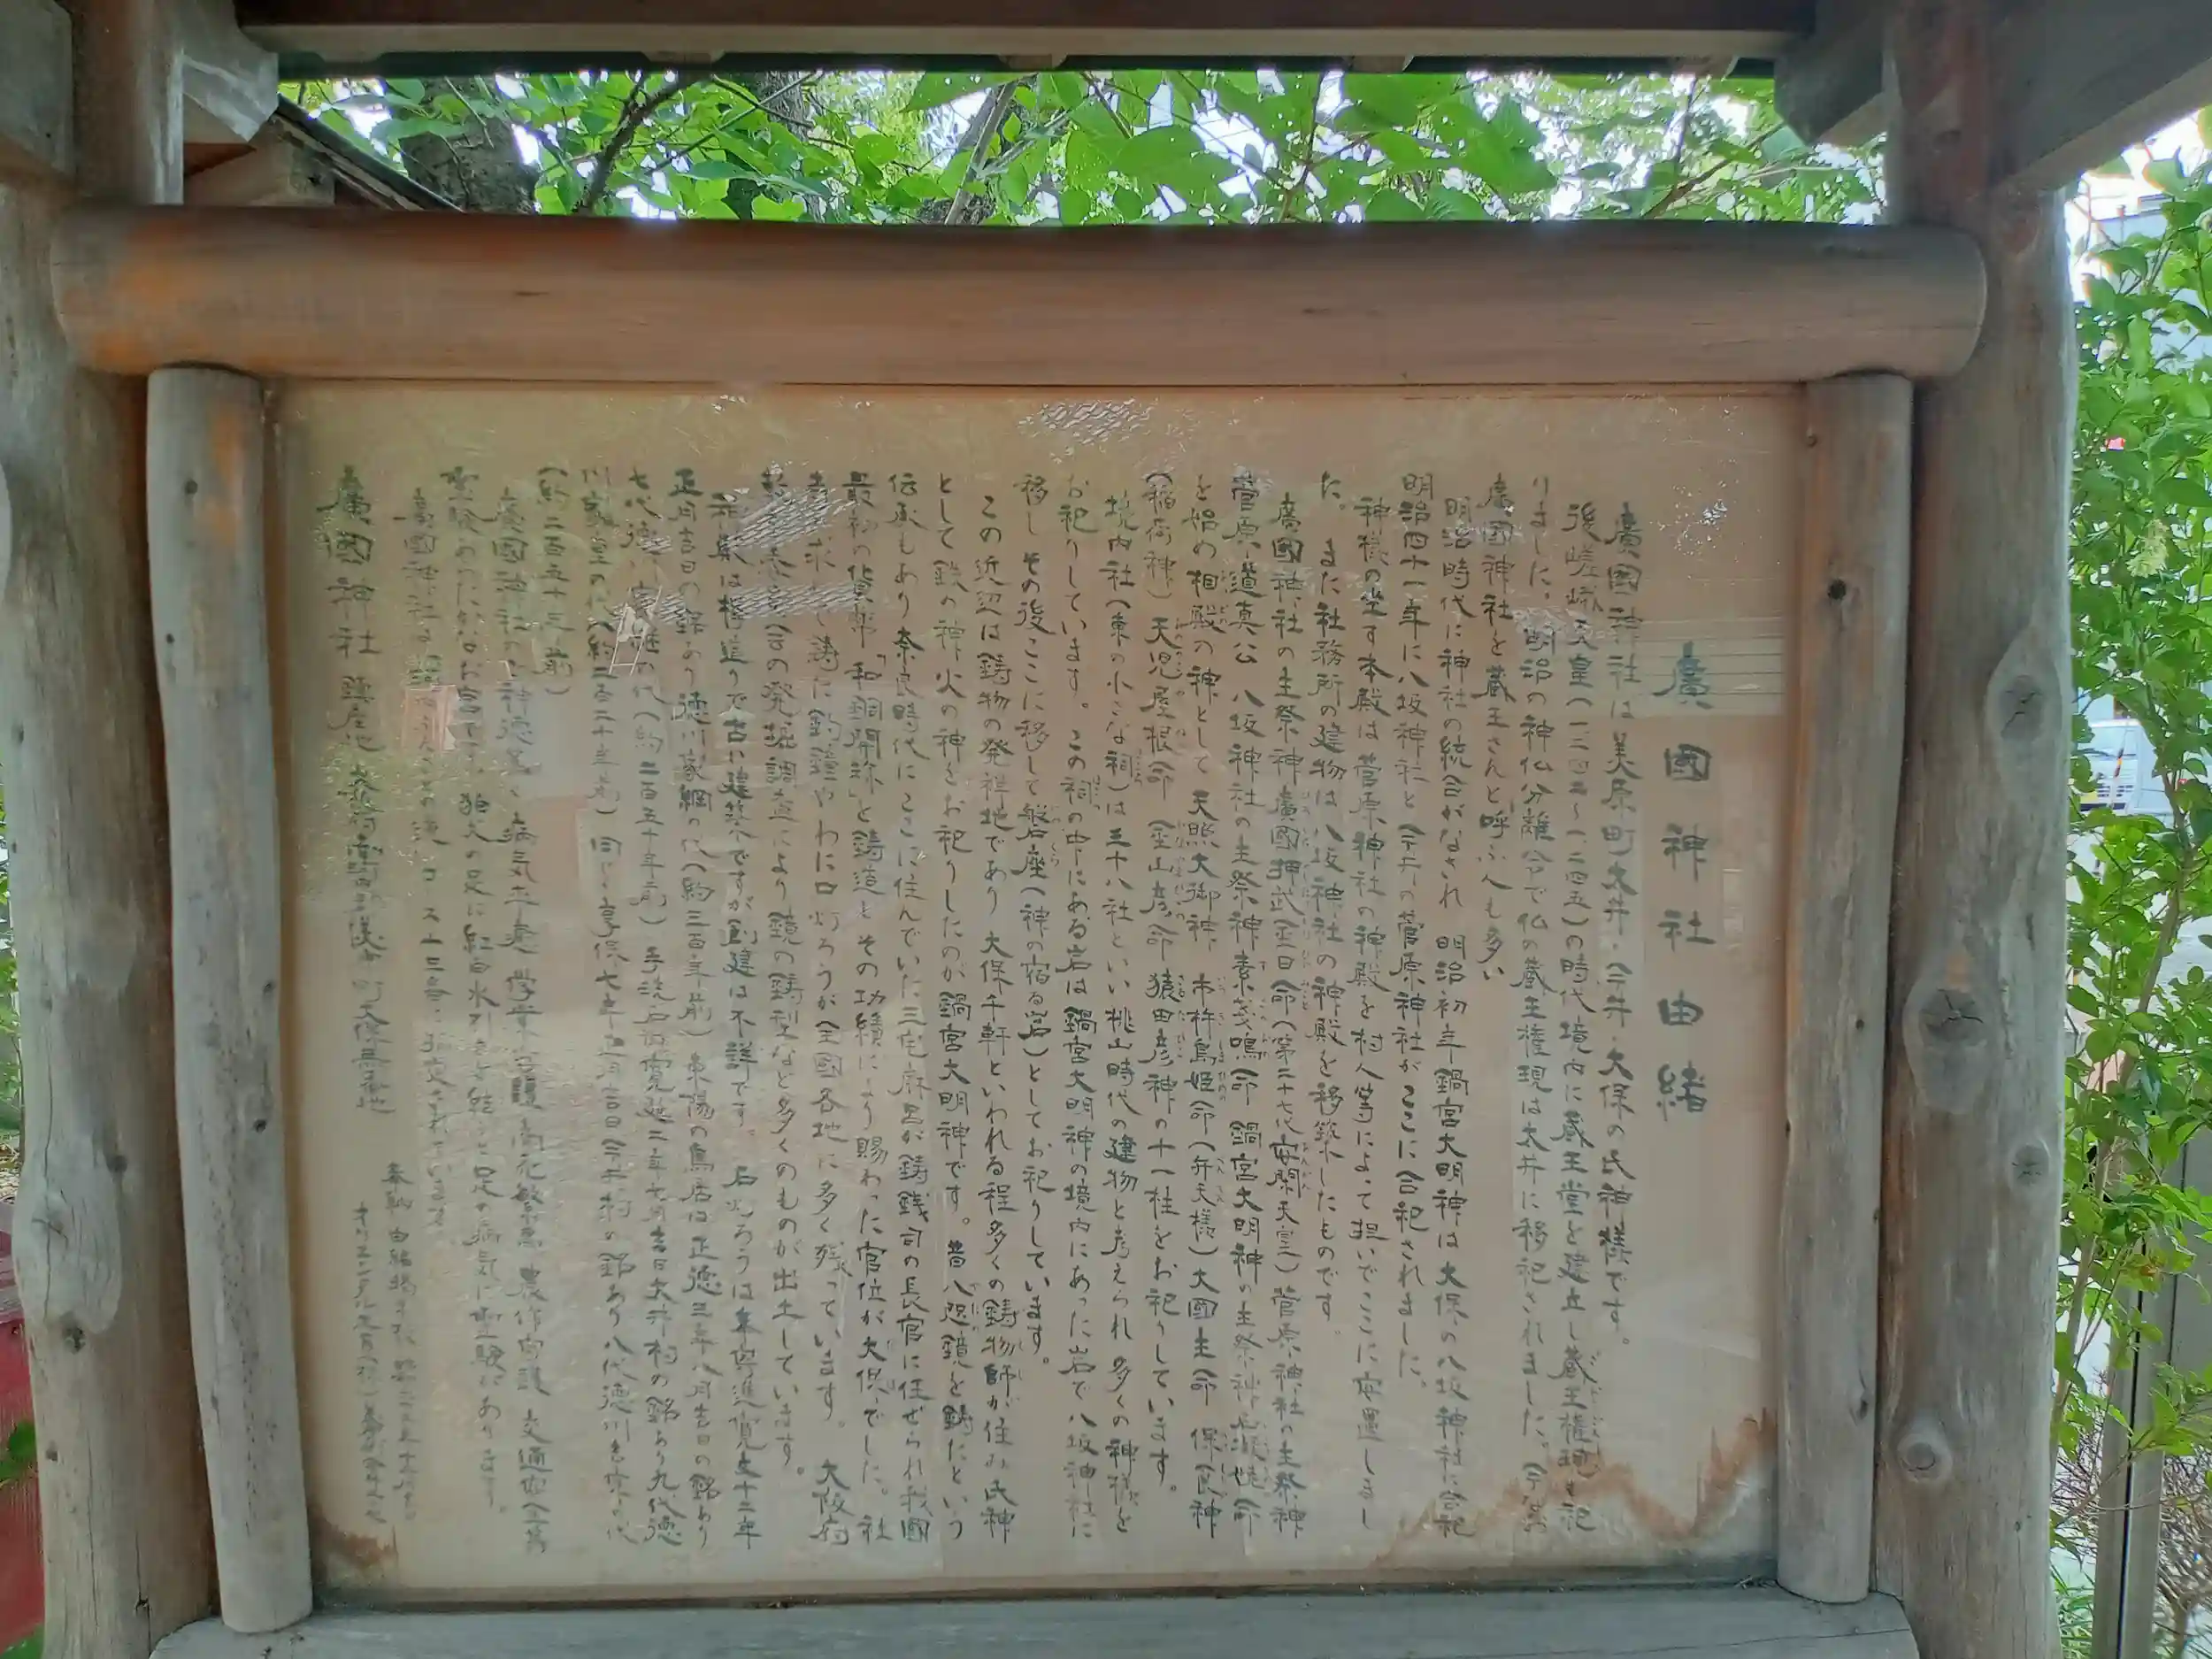 廣國神社由緒
廣國神社は美原町太井・今井・大保の氏神様です。
後嵯峨天皇(一二四二〜一二四五)の時代境内に蔵王堂を建立し蔵王権現を祀
りました。明治の神仏分離令で仏の蔵王権現は太井に移祀されました。今なお
廣國神社を蔵王さんと呼ぶ人も多い
明治時代に神社の統合がなされ 明治初年鍋宮大明神は大保の八坂神社に合祀
明治四十一年に八坂神社と今井の菅原神社がここに合祀されました。
神様の坐す本殿は菅原神社の神殿を村人等によって担いでここに安置しまし
た。また社務所の建物は八坂神社の神殿を移築したものです。
廣國神社の主祭神廣國押武金日命(第二十七代安閑天皇)菅原神社の主祭神
菅原道真公 八坂神社の主祭神素戔嗚命 鍋宮大明神の主祭神 命
を始め相殿の神として天照大御神 市杵島姫命(弁天様)大國主命 保食神
(稲荷神)天児屋根命 金山彦命 猿田彦神の十一柱をお祀りしています。
境内社(東の小さな祠)は三十八社といい桃山時代の建物と考えられ多くの神様を
お祀りしています。この祠の中にある岩は鍋宮大明神の境内にあった岩で八坂神社に
移しその後ここに移して磐座(神の宿る岩)としてお祀りしています。
この近辺は鋳物の発祥地であり大保千軒といわれる程多くの鋳物師が住み氏神
として鉄の神火の神をお祀りしたのが鍋宮大明神です。昔八咫鏡を鋳たという
伝承もあり奈良時代にここに住んでいた三宅麻呂が鋳銭司の長官に任ぜられ我國
最初の貨幣「和銅開珎」を鋳造しその功績により賜わった官位が大保でした。社
寺 求 て鋳た釣鐘やわに口灯ろうが全國各地に多く残っています。大阪府
教 委 会の発掘調査により鏡の鋳型など多くのものが出土しています。
神殿は権 造りで古い建築ですが創建は不詳です。石灯ろうは 寄進寛文十二年
正月吉日の銘あり徳川家綱の代(約三百年前)東陽の鳥居は正徳三年八月吉日の銘あり
七代徳川家継の代(約二百五十年前)手洗石 寛延二年七月吉日太井村の銘あり九代徳
川家重の代(約二百二十年前)同じく享保七年正月吉日今井村の銘あり八代徳川吉宗の代
(約二百五十三年前)
廣國神社の 神徳 病気平癒 学業 商売繁昌 農作守護 交通安全等
聖験あらたかなお宮です。狛犬の足に紅白水引を結ぶと足の病気に聖験があります。
廣國神社は
廣國神社 鎮座地 大阪府南河内 美原町大保
奉納 由緒掲